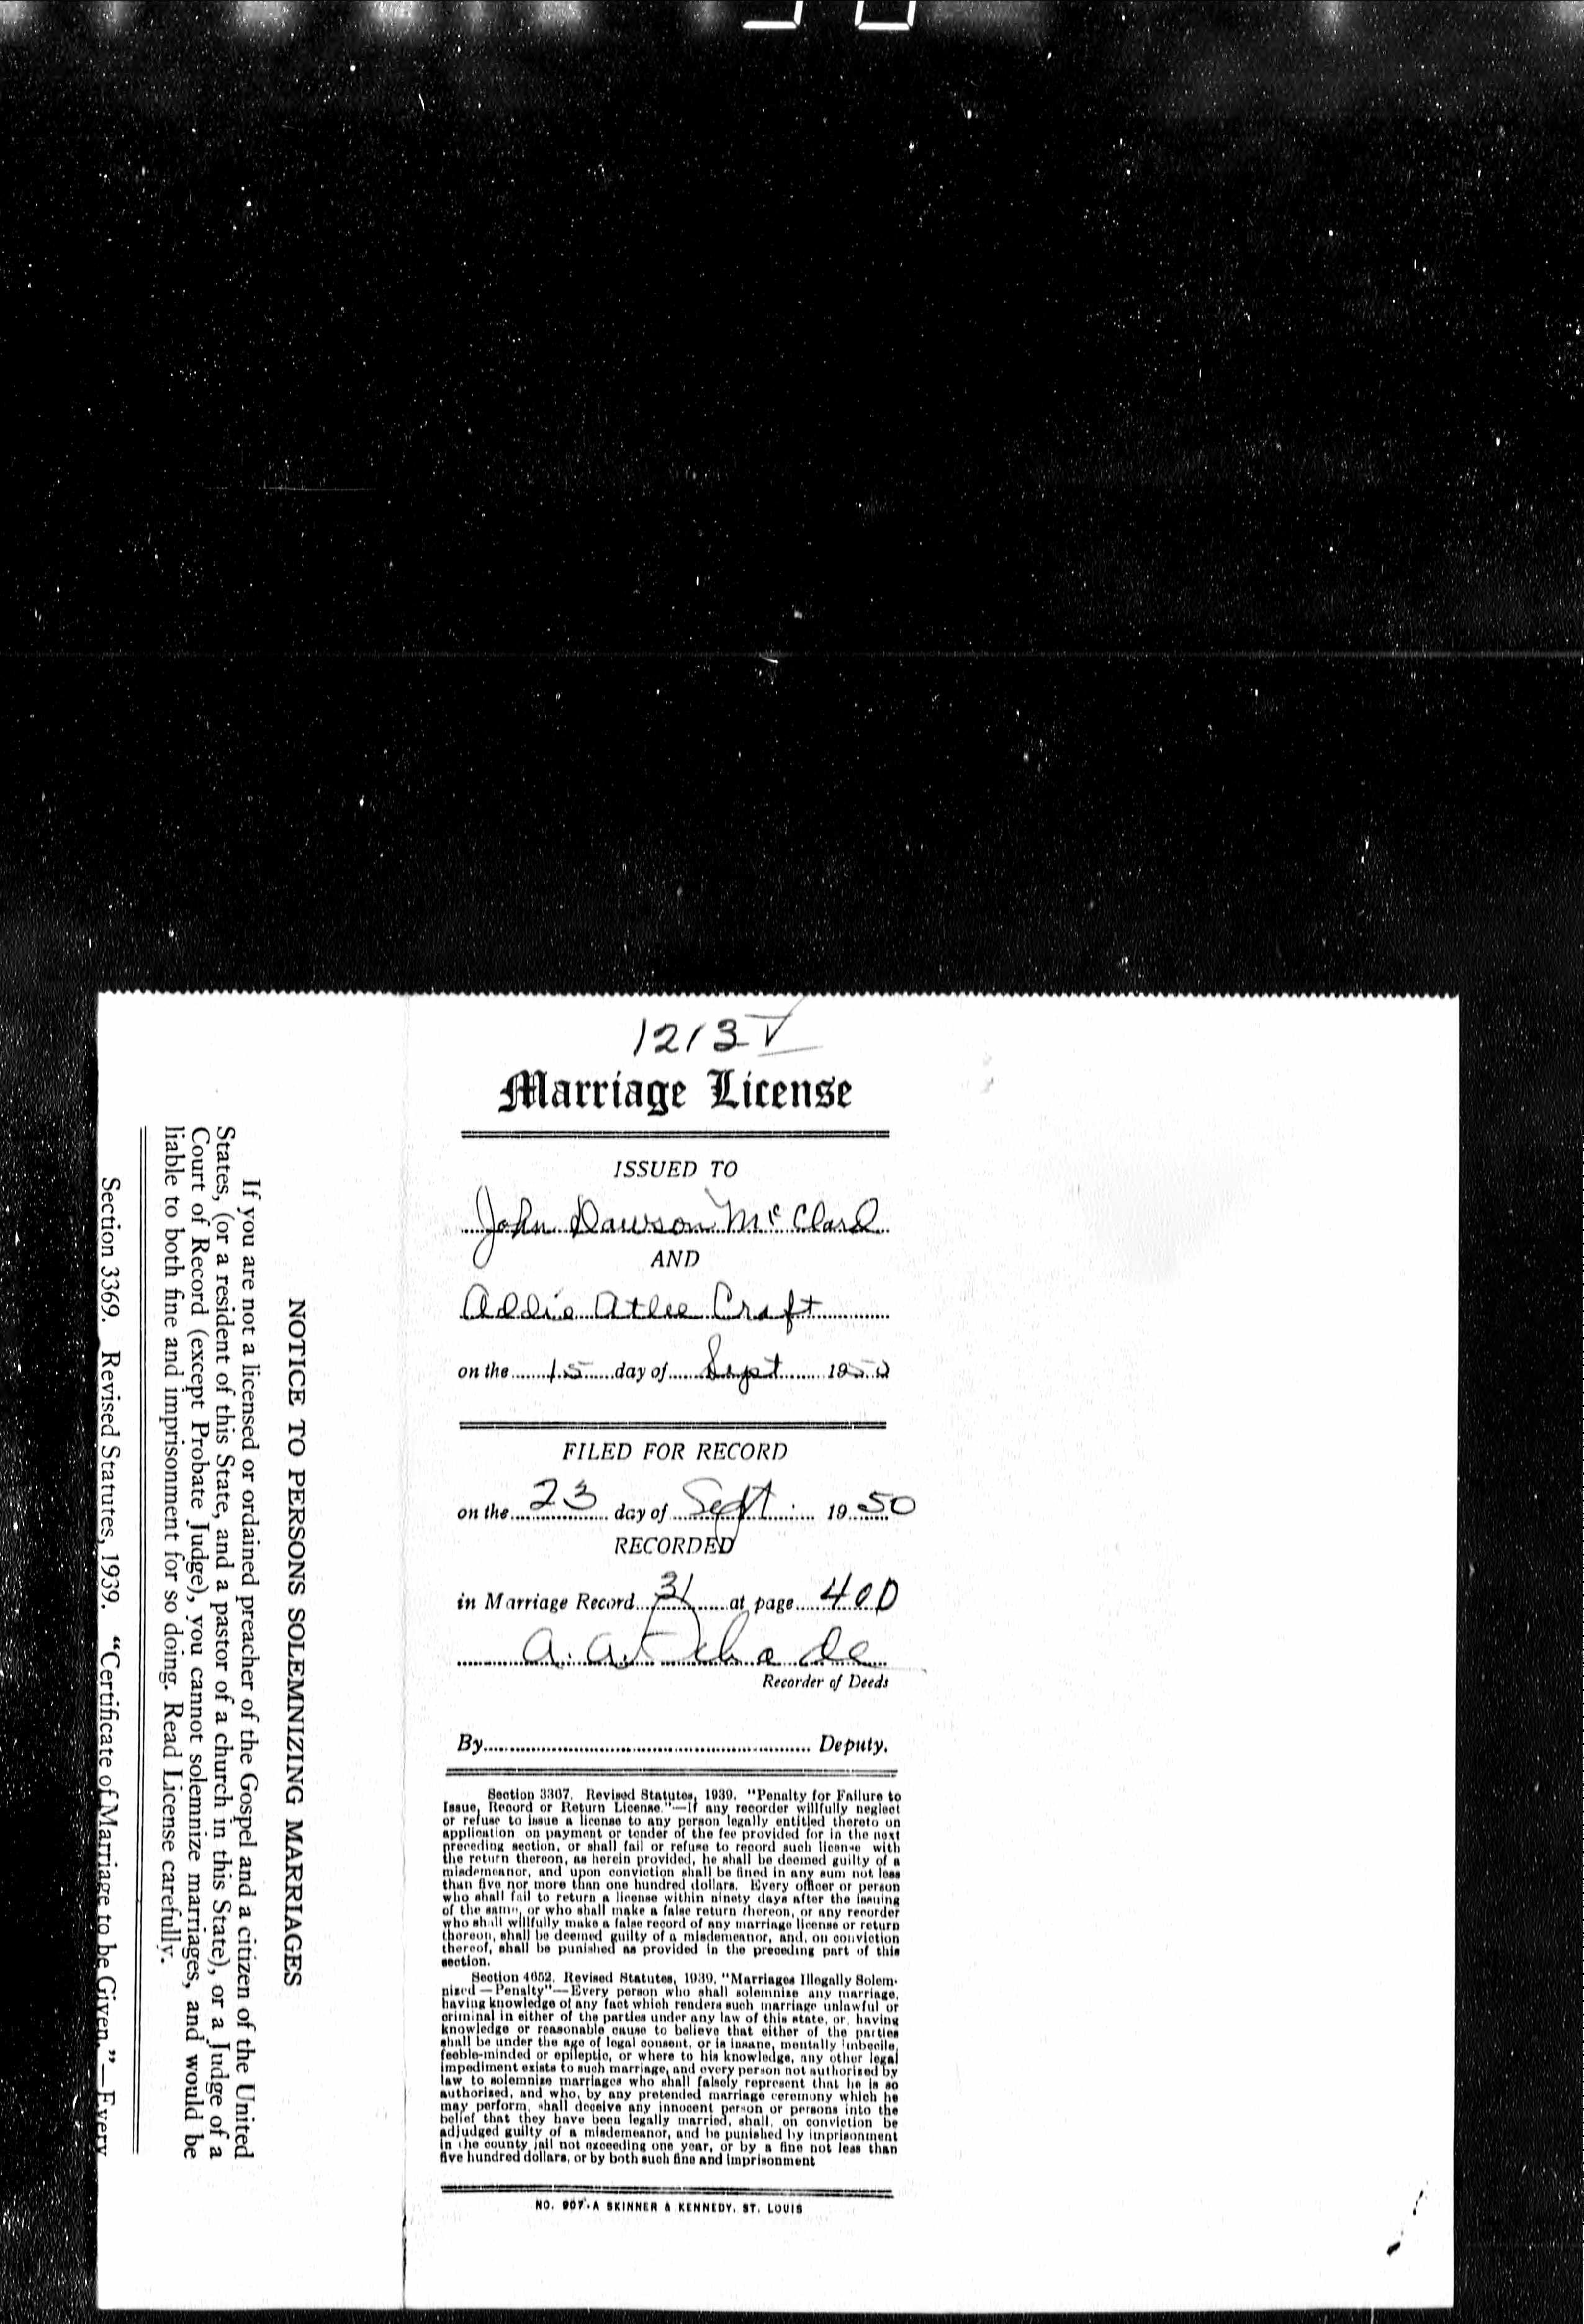 1213 V
Marriage License
ISSUED TO
John Dawson McClard
AND
Addie Atlee Craft
on the 15 day of Sept 1950
FILED FOR RECORD
on the 23 day of Sept. 1950
RECORDED
in Marriage Record 31 at page 400
A. A. Schade
Recorder of Deeds
By Deputy.
Section 3367. Revised Statutes, 1939. "Penalty for Failure to
Issue, Record or Return License."—If any recorder willfully neglect
or refuse to issue a license to any person legally entitled thereto on
application on payment or tender of the fee provided for in the next
preceding section, or shall fail or refuse to record such license with
the return thereon, as herein provided, he shall be deemed guilty of a
misdemeanor, and upon conviction shall be fined in any sum not less
than five nor more than one hundred dollars. Every officer or person
who shall fail to return a license within ninety days after the issuing
of the same, or who shall make a false return thereon, or any recorder
who shall willfully make a false record of any marriage license or return
thereon, shall be deemed guilty of a misdemeanor, and, on conviction
thereof, shall be punished as provided in the preceding part of this
section.
Section 4652. Revised Statutes, 1939. "Marriages Illegally Solem-
nized—Penalty"—Every person who shall solemnize any marriage,
having knowledge of any fact which renders such marriage unlawful or
criminal in either of the parties under any law of this state, or, having
knowledge or reasonable cause to believe that either of the parties
shall be under the age of legal consent, or is insane, mentally imbecile,
feeble-minded or epileptic, or where to his knowledge, any other legal
impediment exists to such marriage, and every person not authorized by
law to solemnize marriages who shall falsely represent that he is so
authorized, and who, by any pretended marriage ceremony which he
may perform, shall deceive any innocent person or persons into the
belief that they have been legally married, shall, on conviction be
adjudged guilty of a misdemeanor, and be punished by imprisonment
in the county jail not exceeding one year, or by a fine not less than
five hundred dollars, or by both such fine and imprisonment
NO. 907-A SKINNER & KENNEDY, ST. LOUIS
NOTICE TO PERSONS SOLEMNIZING MARRIAGES
If you are not a licensed or ordained preacher of the Gospel and a citizen of the United
States, (or a resident of this State, and a pastor of a church in this State), or a Judge of a
Court of Record (except Probate Judge), you cannot solemnize marriages, and would be
liable to both fine and imprisonment for so doing. Read License carefully.
Section 3369. Revised Statutes, 1939. "Certificate of Marriage to be Given."—Every